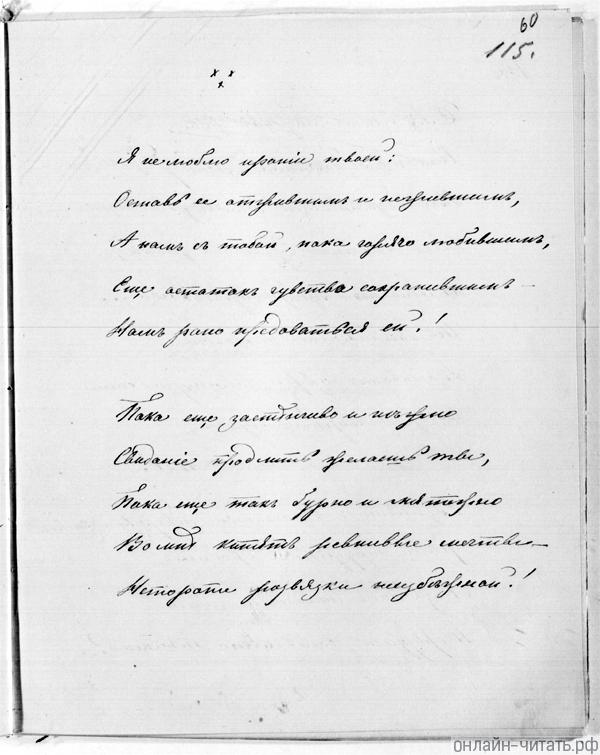 60
115.
x x
x
Я не люблю ироніи твоей:
Оставь ее отжившимъ и нежившимъ,
А намъ съ тобой, пока горячо любившимъ,
Еще остатокъ чувства сохранившимъ —
Намъ рано предоваться ей!
Пока еще застѣнчиво и нѣжно
Свиданіе продлить желаешь ты,
Пока еще такъ бурно и мятежно
Во мнѣ кипятъ ревнивые мечты —
Не торопи развязки неизбѣжной!
онлайн-читать.рф